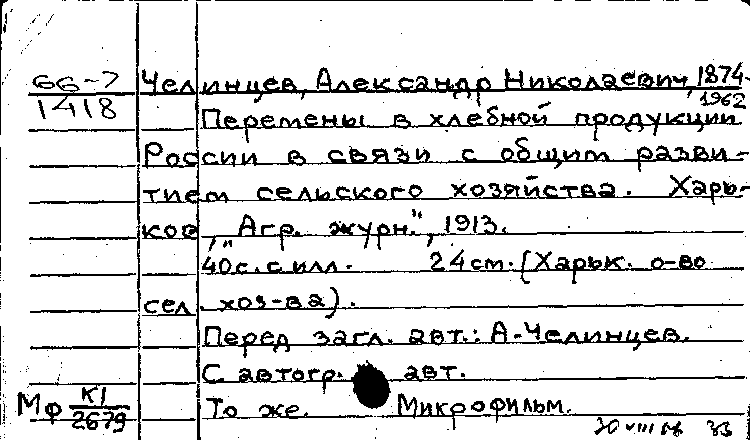 66-7
1418
Челинцев, Александр Николаевич, 1874-
1962
Перемены в хлебной продукции
России в связи с общим разви-
тием сельского хозяйства. Харь-
ков, "Агр. журн.", 1913.
40с. с илл. 24 см. (Харьк. о-во
сел. хоз-ва).
Перед загл. авт.: А. Челинцев.
С автогр. авт.
Мф К1
2679
То же. Микрофильм.
30 VIII 33